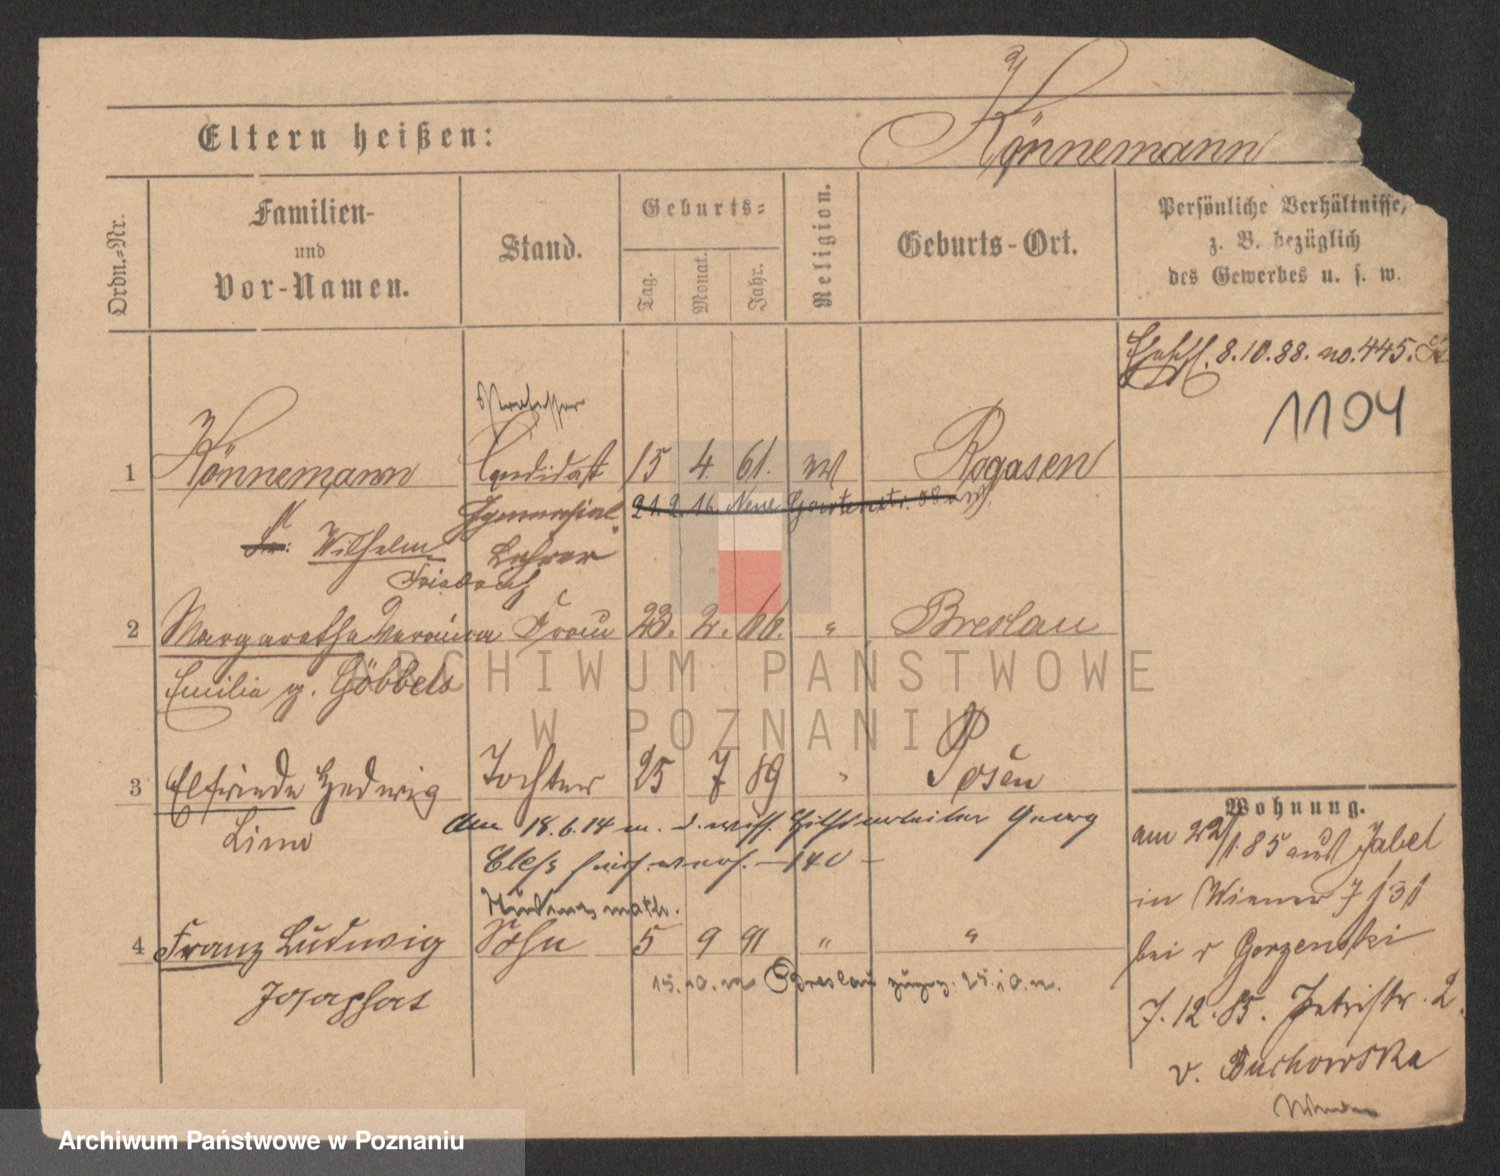 Könnemann
Eltern heißen:
Ordn.-Nr.
Familien-
und
Vor-Namen.
Stand.
Geburts-
Tag.
Monat.
Jahr.
Religion.
Geburts-Ort.
Persönliche Verhältnisse,
z. B. bezüglich
des Gewerbes u. s. w.
8.10.88. no. 445.
1104
Professor
1 Könnemann Candidat 15 4. 61. Rogasen
Gymnasial
21.2.16. Neue Gartenstr. 58
Wilhelm Lehrer
Friedrich
2 Margarethe Veronica Frau 23. 2. 66. " Breslau
Emilie g. Göbbels
3 Elfriede Hedwig Tochter 25 7 89 " Posen
Am 18.6.14 m. d. wiss. Hilfsarbeiter Georg
140
4 Franz Ludwig Sohn 5 9 91 " "
Josaphat
15.10. Breslau 25.10.
Wohnung.
am 22/1.85 aus Zabel
in Wiener 7
bei Gorzenski
7.12.85. Petristr. 2.
v. Buchowska
ARCHIWUM PAŃSTWOWE
W POZNANIU
Archiwum Państwowe w Poznaniu